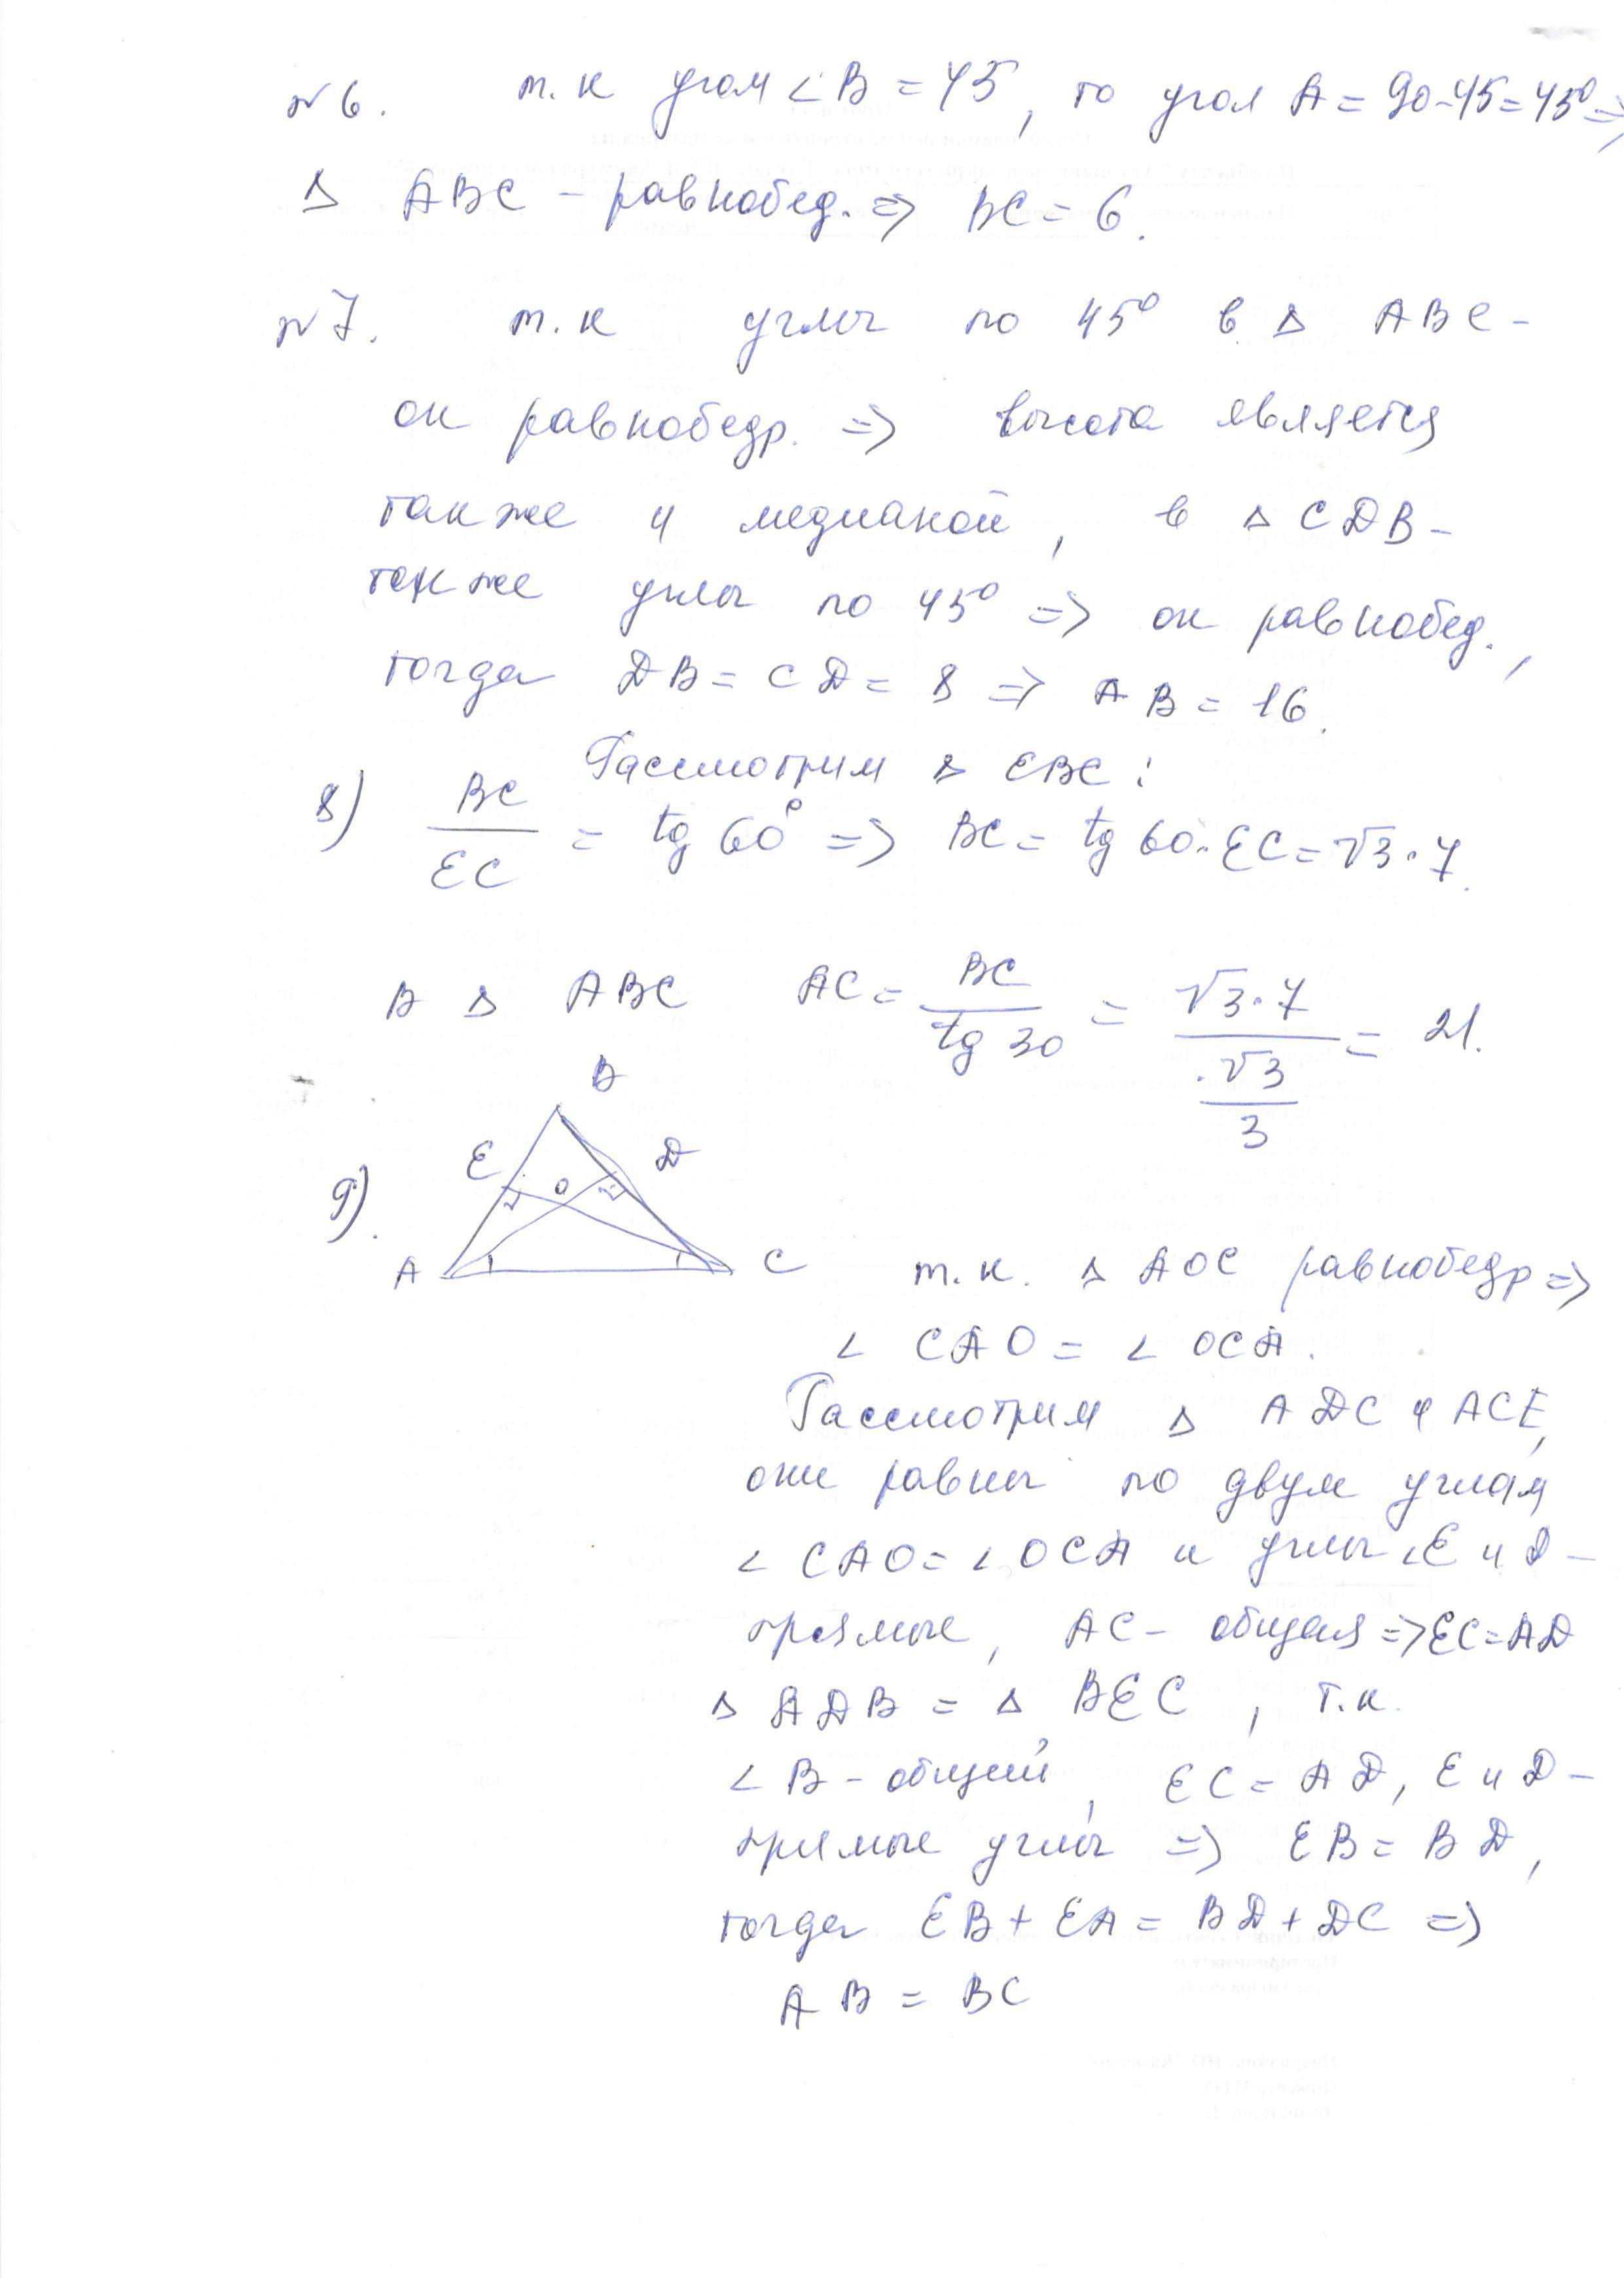 №6. т.к угол ∠B = 45, то угол A = 90-45=45⁰ =>
Δ ABC - равнобед. => BC = 6.
№7. т.к углы по 45⁰ в Δ ABC -
он равнобедр. => высота является
также и медианой, в Δ CDB -
также углы по 45⁰ => он равнобед.,
тогда DB = CD = 8 => AB = 16.
8) Рассмотрим Δ EBC :
BC/EC = tg 60° => BC = tg 60·EC = √3·7.
В Δ ABC AC = BC/tg 30 = √3·7/(√3/3) = 21.
B
E D
9). O
A C т.к. Δ AOC равнобедр =>
∠ CAO = ∠ OCA.
Рассмотрим Δ ADC и ACE,
они равны по двум углам
∠ CAO = ∠ OCA и углы ∠E и D -
прямые, AC - общая => EC = AD
Δ ADB = Δ BEC, т.к.
∠ B - общий, EC = AD, E и D -
прямые углы => EB = BD,
тогда EB + EA = BD + DC =>
AB = BC